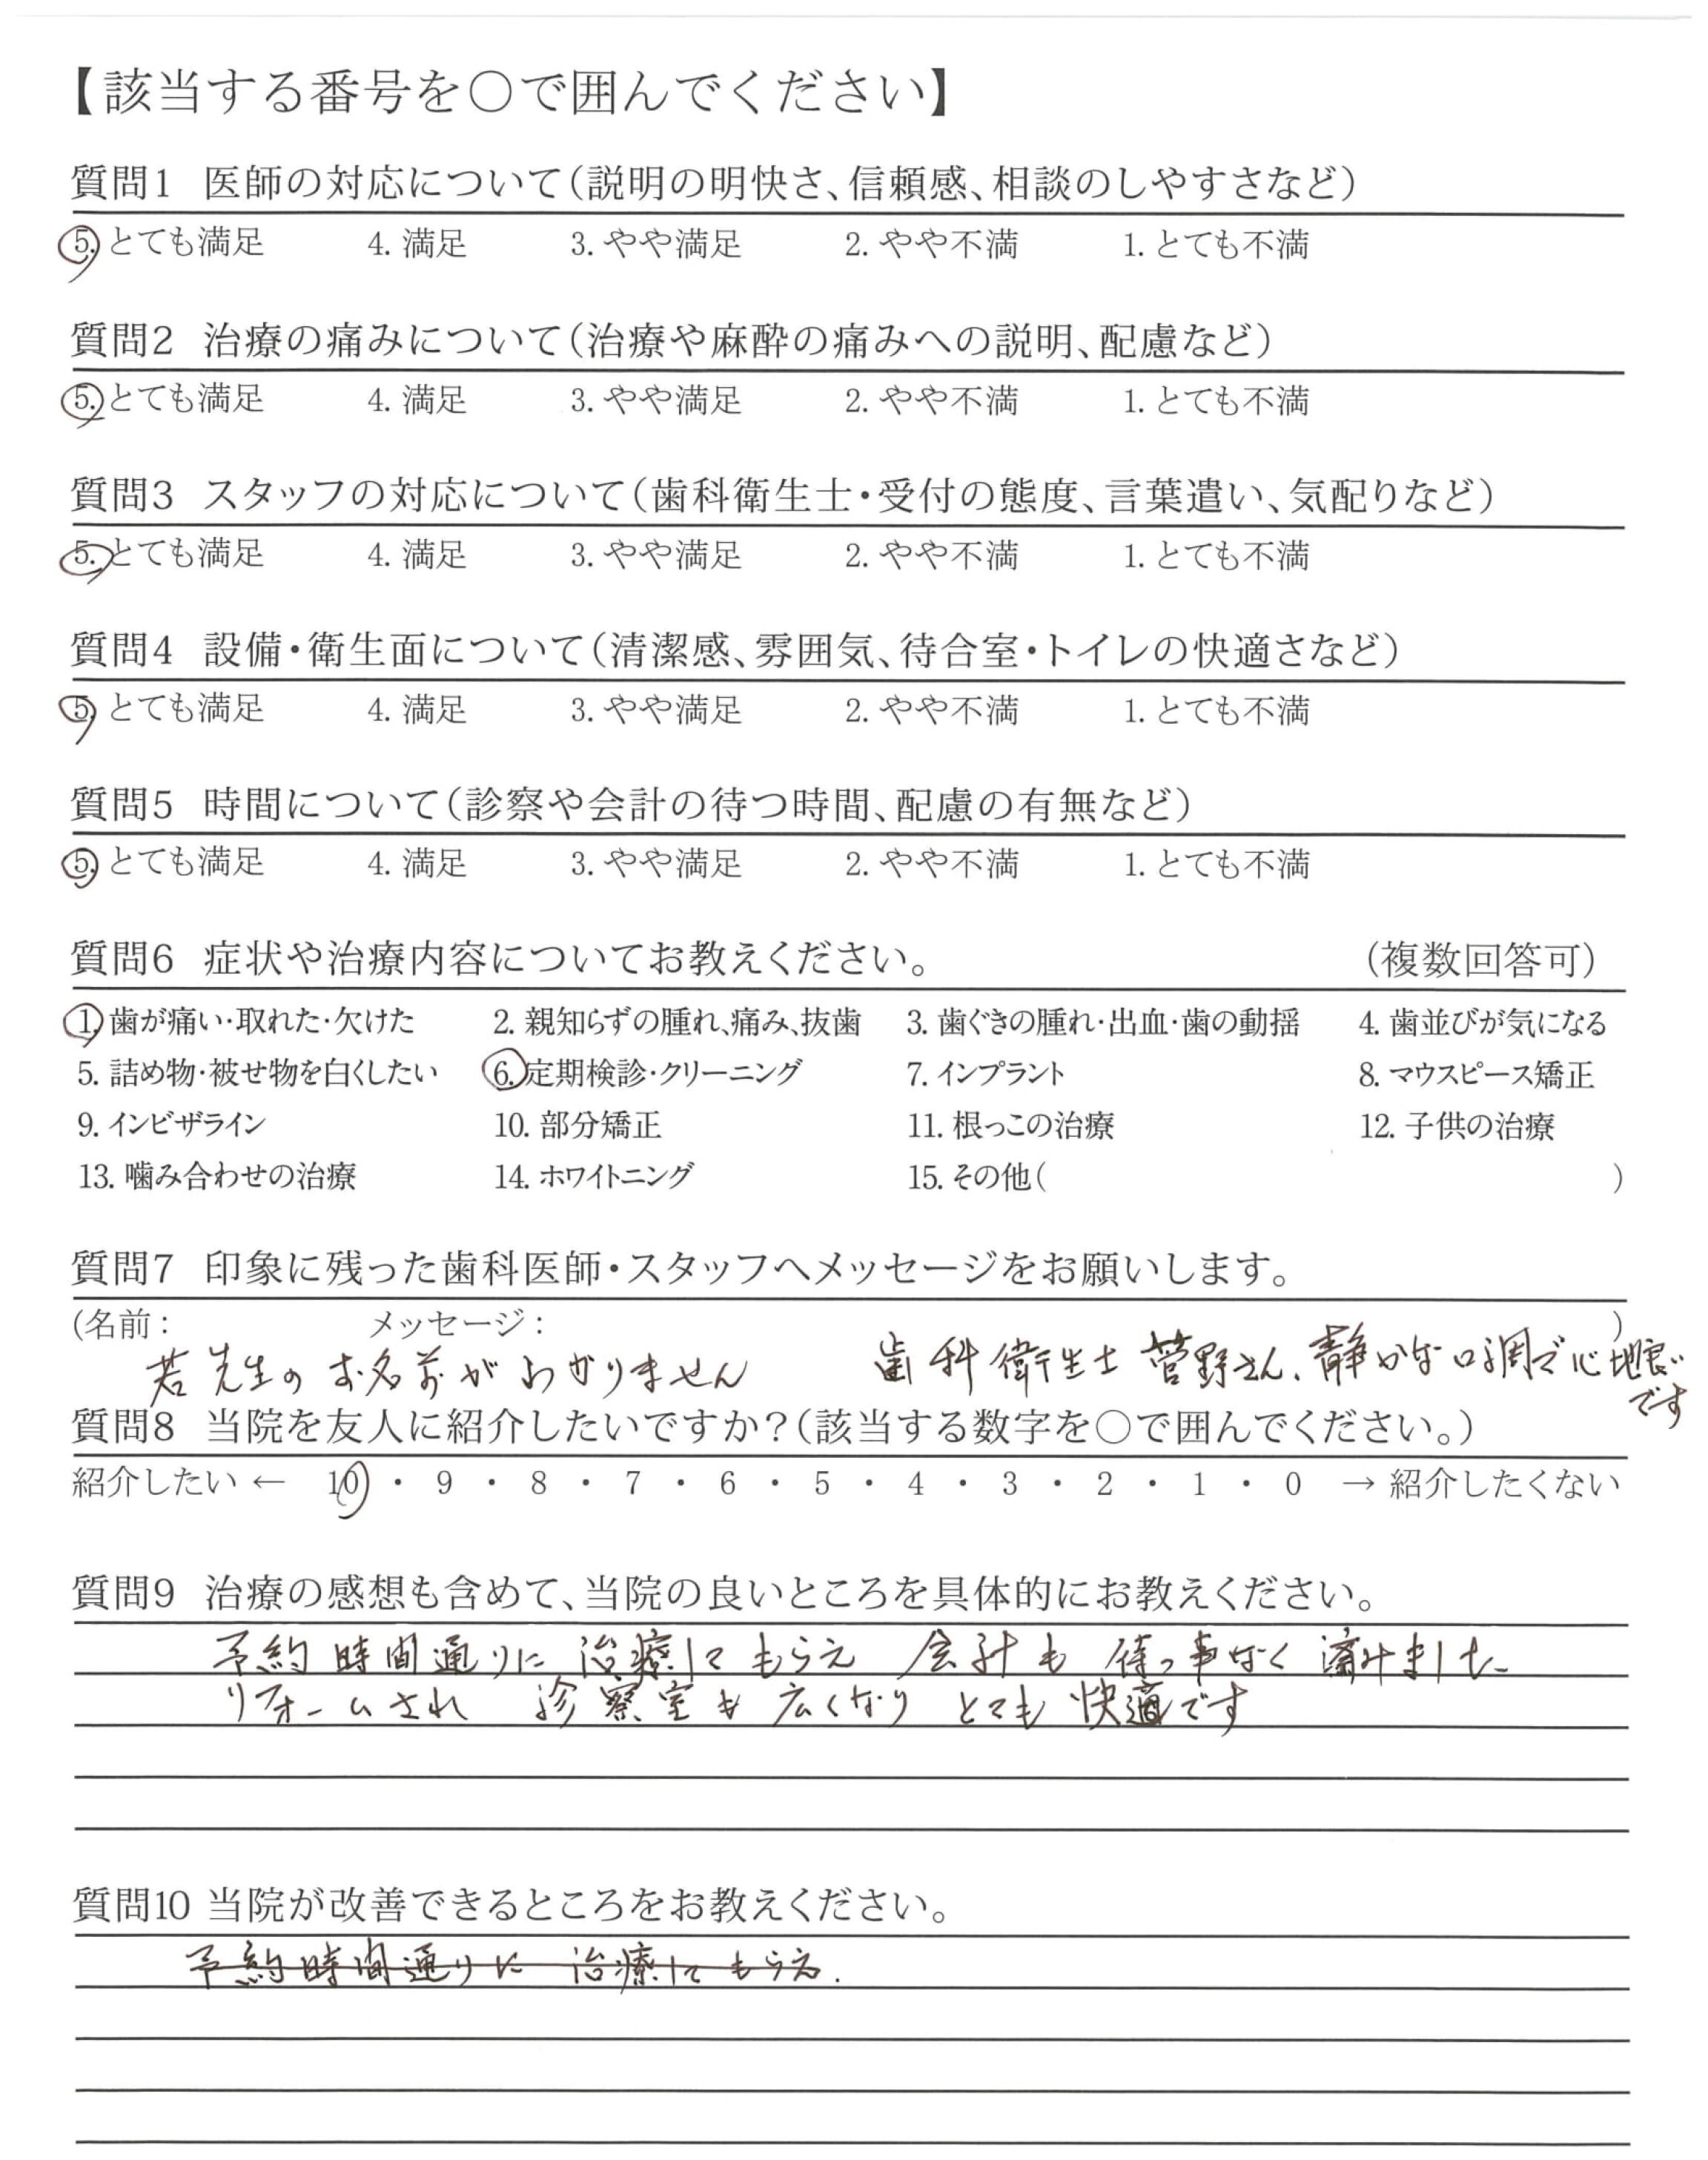 【該当する番号を〇で囲んでください】
質問1 医師の対応について（説明の明快さ、信頼感、相談のしやすさなど）
5. とても満足 4. 満足 3. やや満足 2. やや不満 1. とても不満
質問2 治療の痛みについて（治療や麻酔の痛みへの説明、配慮など）
5. とても満足 4. 満足 3. やや満足 2. やや不満 1. とても不満
質問3 スタッフの対応について（歯科衛生士・受付の態度、言葉遣い、気配りなど）
5. とても満足 4. 満足 3. やや満足 2. やや不満 1. とても不満
質問4 設備・衛生面について（清潔感、雰囲気、待合室・トイレの快適さなど）
5. とても満足 4. 満足 3. やや満足 2. やや不満 1. とても不満
質問5 時間について（診察や会計の待つ時間、配慮の有無など）
5. とても満足 4. 満足 3. やや満足 2. やや不満 1. とても不満
質問6 症状や治療内容についてお教えください。 （複数回答可）
1. 歯が痛い・取れた・欠けた 2. 親知らずの腫れ、痛み、抜歯 3. 歯ぐきの腫れ・出血・歯の動揺 4. 歯並びが気になる
5. 詰め物・被せ物を白くしたい 6. 定期検診・クリーニング 7. インプラント 8. マウスピース矯正
9. インビザライン 10. 部分矯正 11. 根っこの治療 12. 子供の治療
13. 噛み合わせの治療 14. ホワイトニング 15. その他（ ）
質問7 印象に残った歯科医師・スタッフへメッセージをお願いします。
（名前： メッセージ： ）
若先生のお名前がわかりません 歯科衛生士 菅野さん、静かな口調で心地良い
です
質問8 当院を友人に紹介したいですか？（該当する数字を〇で囲んでください。）
紹介したい ← 10 ・ 9 ・ 8 ・ 7 ・ 6 ・ 5 ・ 4 ・ 3 ・ 2 ・ 1 ・ 0 → 紹介したくない
質問9 治療の感想も含めて、当院の良いところを具体的にお教えください。
予約時間通りに 治療してもらえ 会計も 待つ事なく 済みました
リフォームされ 診察室も 広くなり とても 快適です
質問10 当院が改善できるところをお教えください。
予約時間通りに 治療してもらえ.